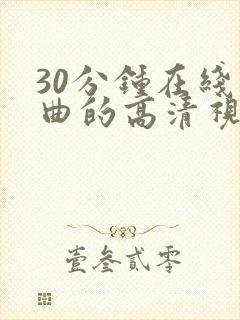 30分鍾在綫
曲的高清視
壹叁貳零